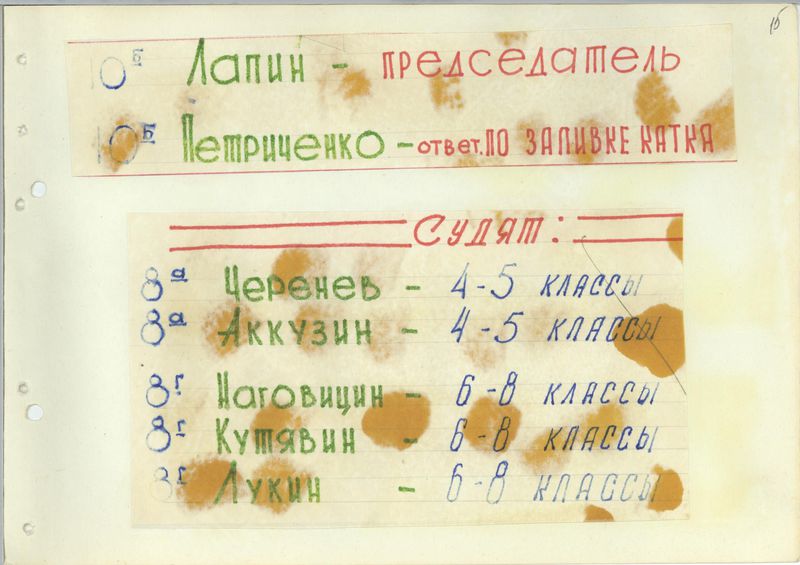 15
10б Лапин - председатель
10б Петриченко - ответ. по заливке катка
Судят:
8а Черенев - 4-5 классы
8а Аккузин - 4-5 классы
8г Наговицин - 6-8 классы
8г Кутявин - 6-8 классы
8г Лукин - 6-8 классы